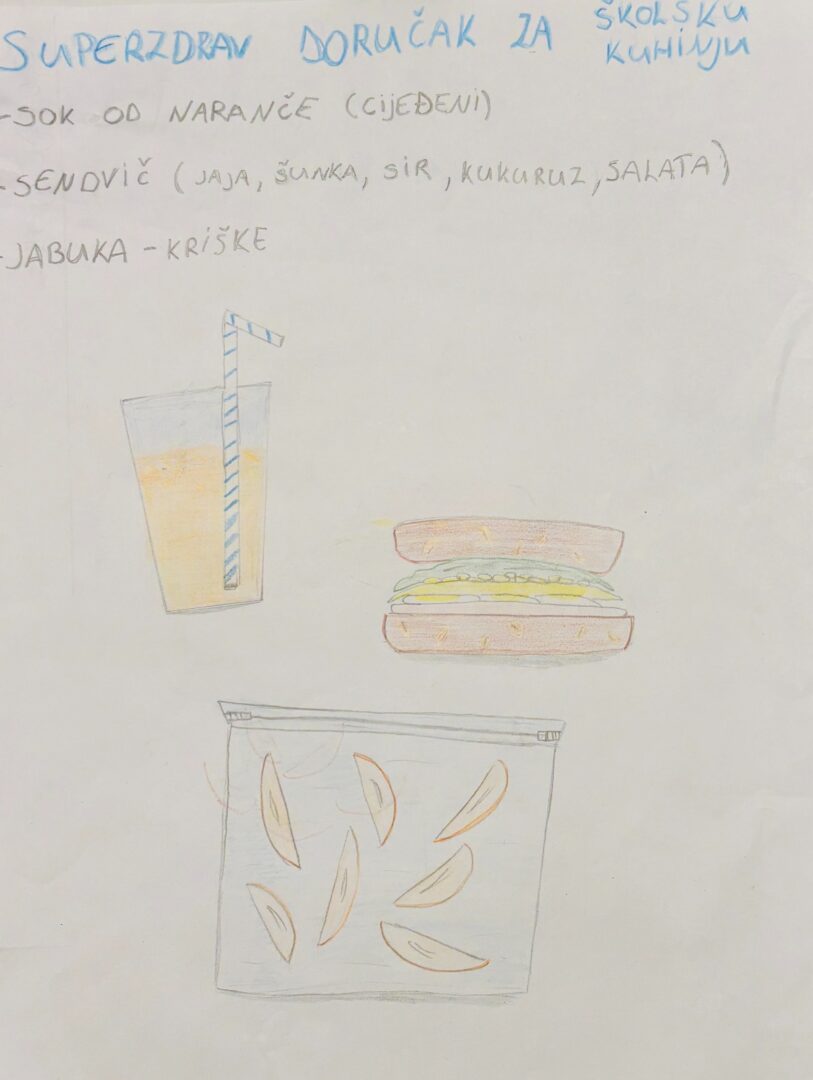 SUPERZDRAV DORUČAK ZA ŠKOLSKU KUHINJU
-SOK OD NARANČE (CIJEĐENI)
-SENDVIČ (JAJA, ŠUNKA, SIR, KUKURUZ, SALATA)
-JABUKA - KRIŠKE